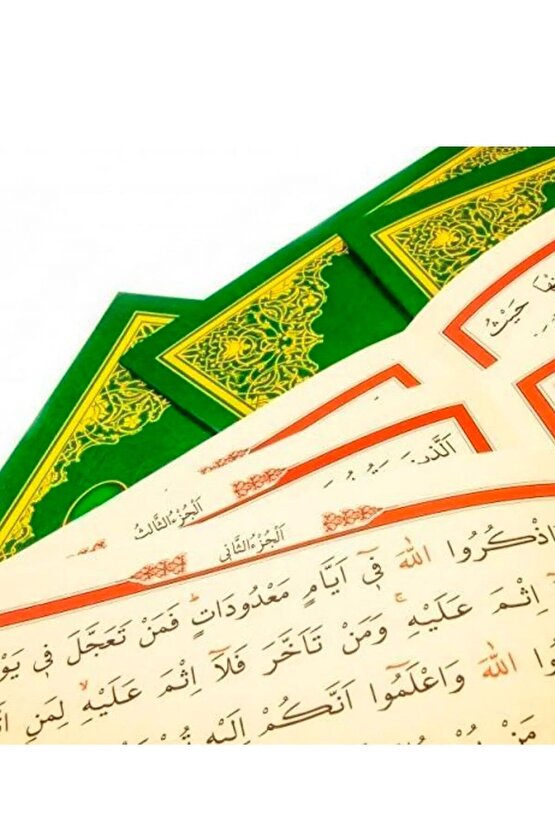 حَيْثُ
اَلَّذ۪ينَ
اَلْجُزْءُ الثَّالِثُ
اَلْجُزْءُ الثَّانِى
اذْكُرُوا اللّٰهَ ف۪ٓي اَيَّامٍ مَعْدُودَاتٍۜ فَمَنْ تَعَجَّلَ ف۪ي
اِثْمَ عَلَيْهِۚ وَمَنْ تَاَخَّرَ فَلَٓا اِثْمَ عَلَيْهِۙ لِمَنِ
اللّٰهَ وَاعْلَمُٓوا اَنَّكُمْ اِلَيْهِ
مَنْ